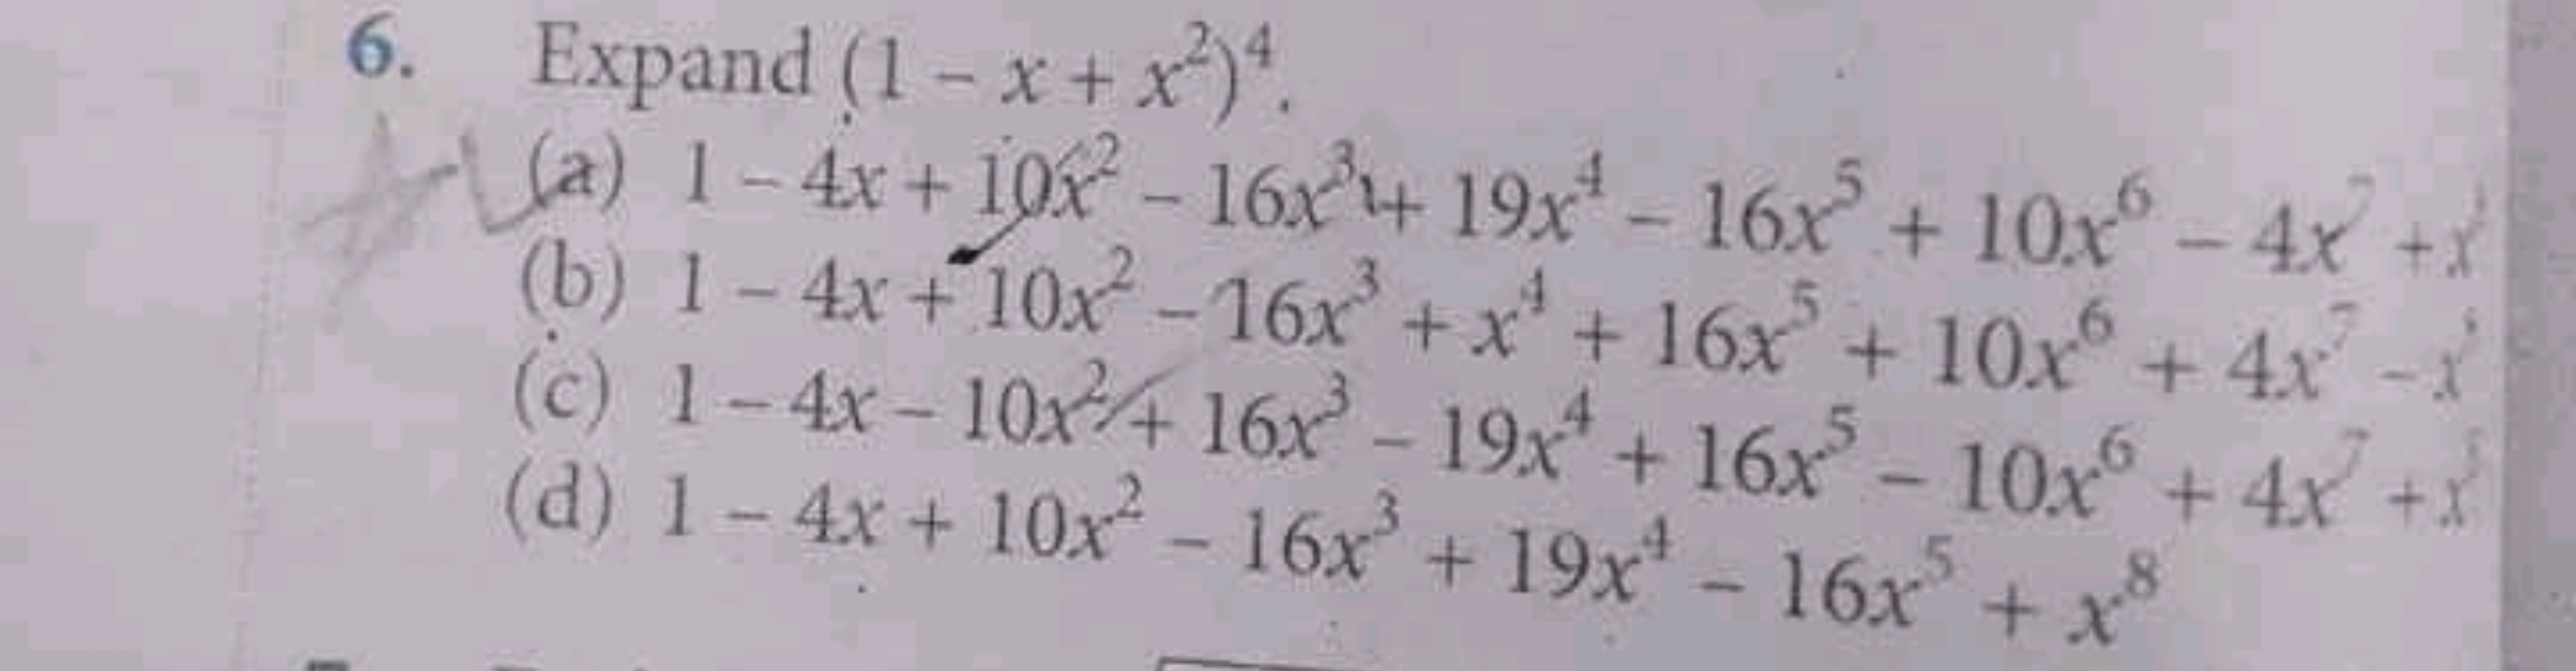 6. Expand (1 – x + x²)⁴.
(a) 1 – 4x + 10x² – 16x³ + 19x⁴ – 16x⁵ + 10x⁶ – 4x⁷ + x
(b) 1 – 4x + 10x² – 16x³ + x⁴ + 16x⁵ + 10x⁶ + 4x⁷ – x
(c) 1 – 4x – 10x² + 16x³ – 19x⁴ + 16x⁵ – 10x⁶ + 4x⁷ + x
(d) 1 – 4x + 10x² – 16x³ + 19x⁴ – 16x⁵ + x⁸